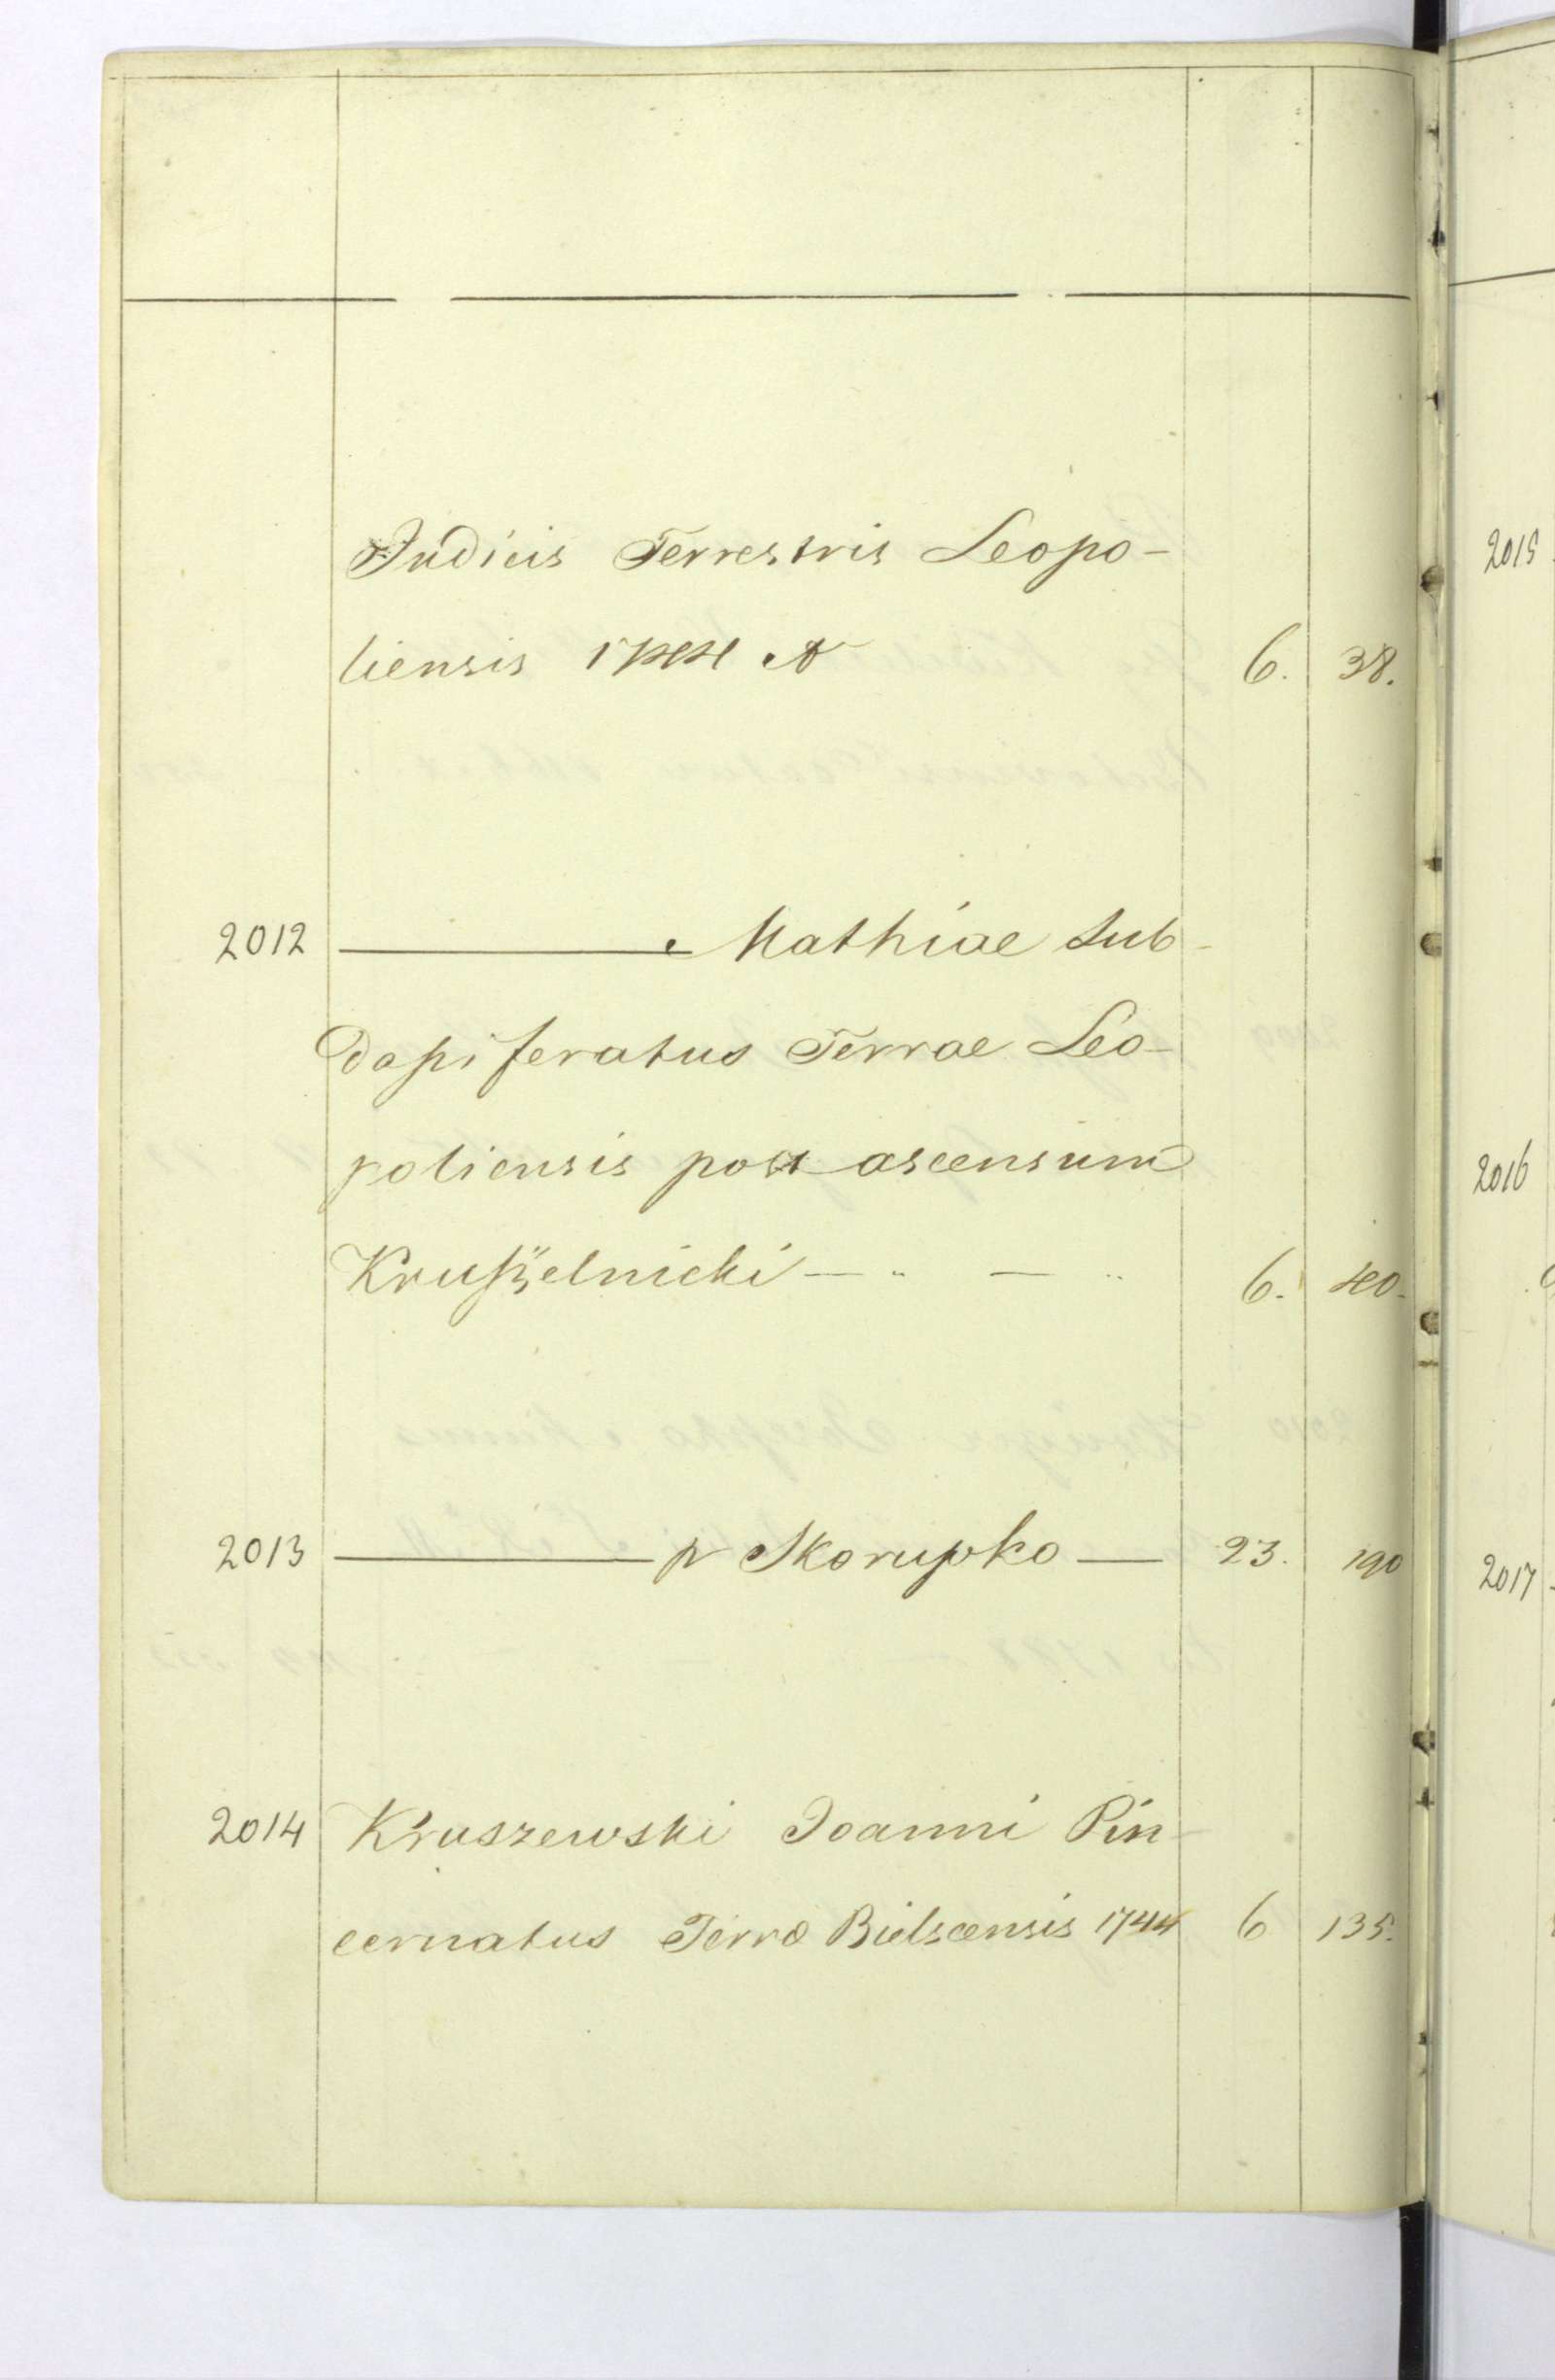 Judicis Terrestris Leopo-
liensis 1744 6. 38.
2012 ——— Mathiae Sub-
dapiferatus Terrae Leo-
poliensis post ascensum
Krusżelnicki — „ — „ 6. 40.
2013 ——— p Skorupko — 23. 190
2014 Kruszewski Joanni Pin-
cernatus Terrae Bielscensis 1744 6 135.
2015
2016
2017